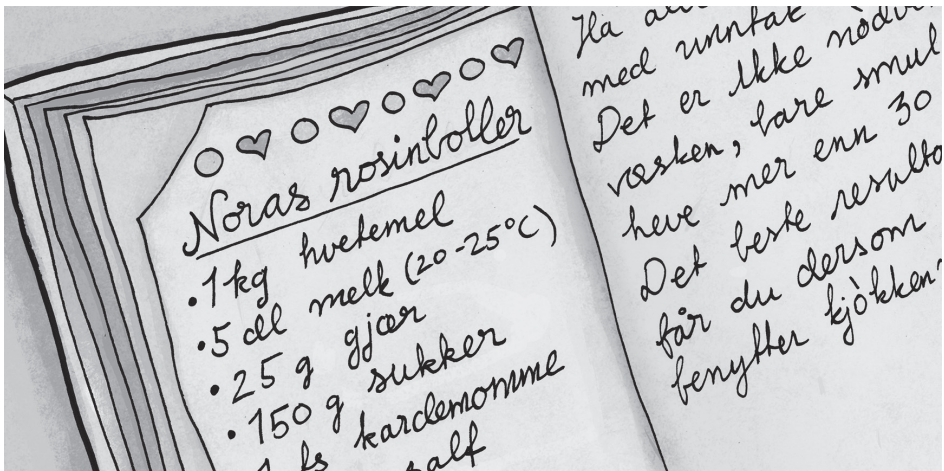 Noras rosinboller
• 1 kg hvetemel
• 5 dl melk (20-25°C)
• 25 g gjær
• 150 g sukker
ts kardemomme
salt
Ha
med unntak
Det er ikke
væsken, bare
heve mer enn 30
Det beste
får du dersom
benytter kjøkken